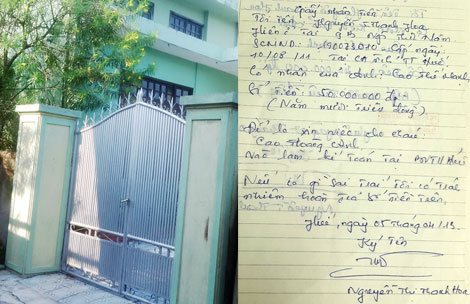 Giấy nhận tiền
Tôi tên: Nguyễn T Thanh Hoa
Hiện ở tại 9B Ngô Thì Nhậm
SCMND: 190073010 cấp ngày:
10/08/11 Tại CA tỉnh TT Huế
Có nhận của anh: Cao Thi
Số tiền: 50.000.000 đ
(Năm mươi triệu đồng)
Để lo xin việc cho cháu:
Cao Hoàng
Vào làm kế toán tại Huế
Nếu có gì sai trái tôi có trách
nhiệm hoàn trả số tiền trên.
Huế, ngày 05 tháng 04/13.
Ký tên
Nguyễn Thị Thanh Hoa